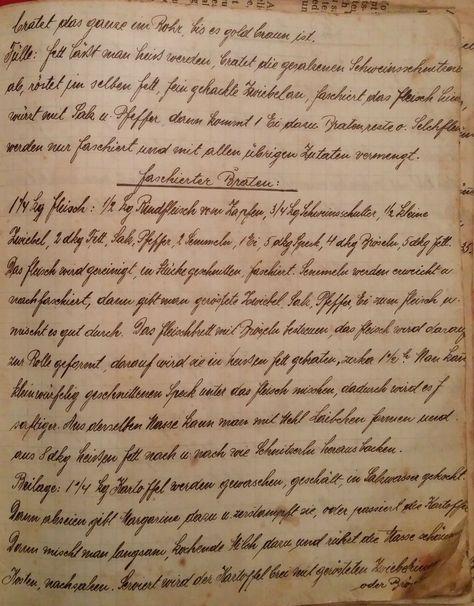 bratet das ganze im Rohr, bis es gold braun ist.
Fülle: Fett läßt man heiß werden, bratet die gesalzenen Schweinsschnitzerln
ab, röstet im selben Fett, fein gehackte Zwiebel an, faschiert das Fleisch
würzt mit Salz u. Pfeffer dann kommt 1 Ei dazu Bratenreste o. Selchfleisch
werden nur faschiert und mit allen übrigen Zutaten vermengt.
Faschierter Braten:
1 1/4 kg Fleisch: 1/2 kg Rindfleisch vom Zapfen, 3/4 kg Schweinschulter, 1/2 kleine
Zwiebel, 2 dkg Fett, Salz, Pfeffer, 2 Semmeln, 1 Ei, 5 dkg Speck, 4 dkg Bröseln, 5 dkg Fett.
Das Fleisch wird gereinigt, in Stücke geschnitten, faschiert. Semmeln werden erweicht u.
nachfaschiert, dann gibt man geröstete Zwiebel, Salz, Pfeffer, Ei zum Fleisch u.
mischt es gut durch. Das Fleischbrett mit Bröseln bestreuen, das Fleisch wird darauf
zur Rolle geformt, darauf wird sie in heissen Fett gebraten, zirka Man kann
kleinwürfelig geschnittenen Speck unter das Fleisch mischen, dadurch wird es
saftiger. Aus derselben Masse kann man mit Mehl Laibchen formen und
aus 8 dkg heissen Fett nach u. nach wie Schnitzerln heraus backen.
Beilage: 1 1/4 kg Kartoffel werden gewaschen, geschält, in Salzwasser gekocht.
Dann abseien gibt Margarine dazu u. zerstampft sie, oder passiert die Kartoffel
Dann mischt man langsam, kochende Milch dazu und rührt die Masse schaumig
Kosten, nachsalzen. Serviert wird der Kartoffelbrei mit gerösteten
oder